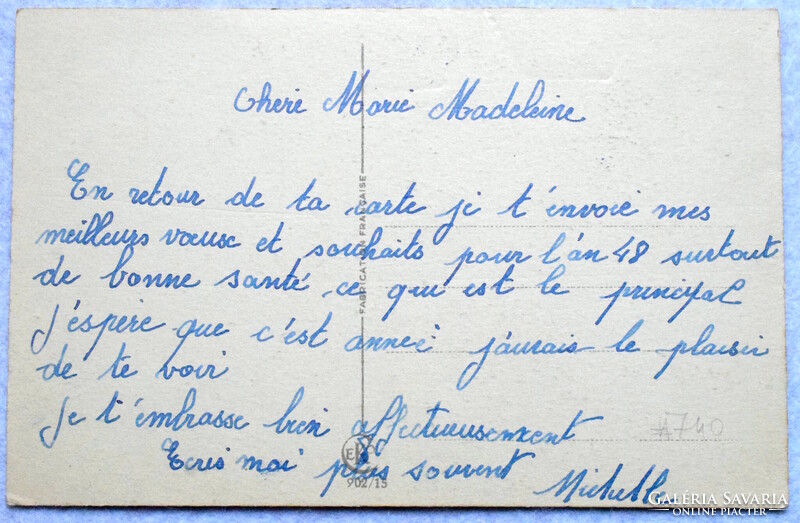 Cherie Marie Madeleine
En retour de ta carte je t'envoie mes
meilleurs voeuse et souhaits pour l'an 48 surtout
de bonne santé ce qui est le principal
j'éspère que c'est anneé j'aurais le plaisir
de te voir
je t'embrasse bien affectueusement
Ecris moi plus souvent
Michelle
FABRICATION FRANÇAISE
902/15
A740
GALÉRIA SAVARIA
ONLINE PIACTÉR